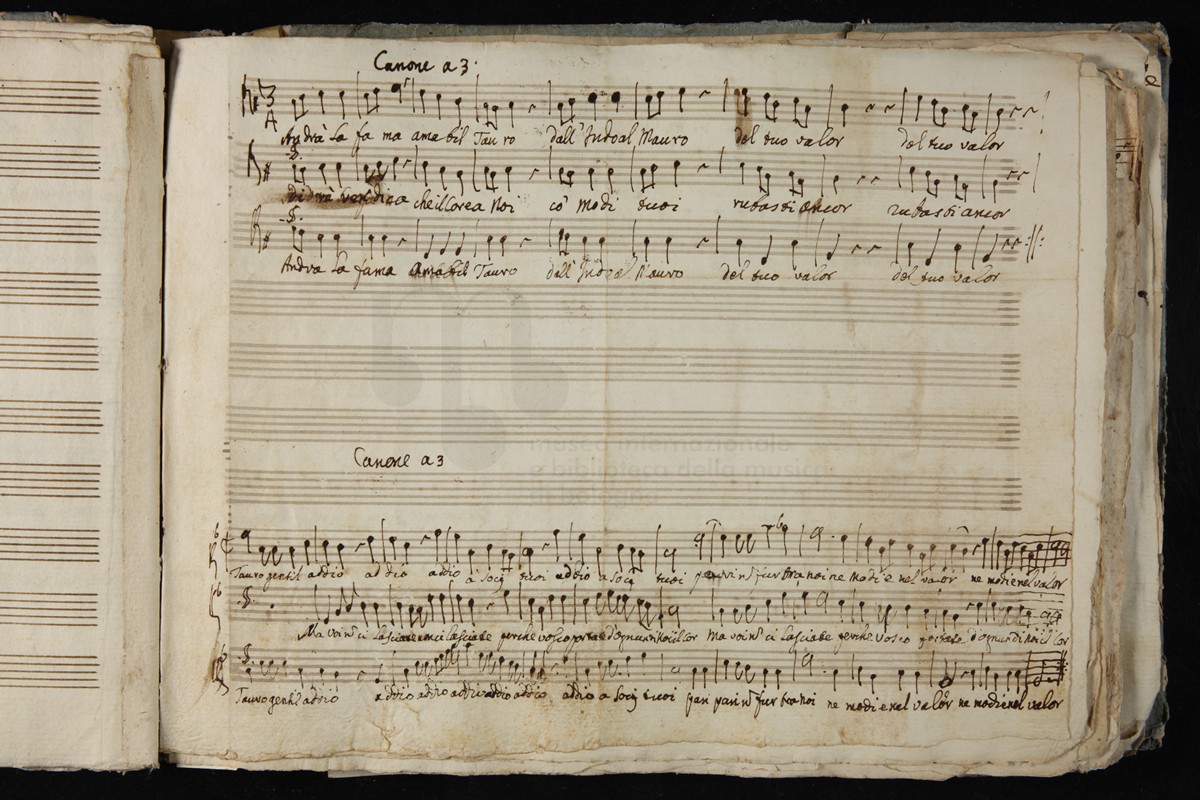 Canone a 3
Andrà la fama amabil Tauro dall' Indo al Mauro del tuo valor del tuo valor
che il cor a noi co' modi tuoi rubasti ancor rubasti ancor
Andra la fama amabil Tauro dall' Indo al Mauro del tuo valor del tuo valor
museo internazionale
e biblioteca della musica
di bologna
Canone a 3
Tauro gentil addio addio addio a socij tuoi addio a socij tuoi fur tra noi ne modi e nel valor ne modi e nel valor
Ma voi ci lasciate perche vosco portate d'ognun di noi il cor Ma voi ci lasciate perche vosco portate d'ognun di noi il cor
Tauro gentil addio addio addio addio addio addio addio a socij tuoi pari pari fur tra noi ne modi e nel valor ne modi e nel valor